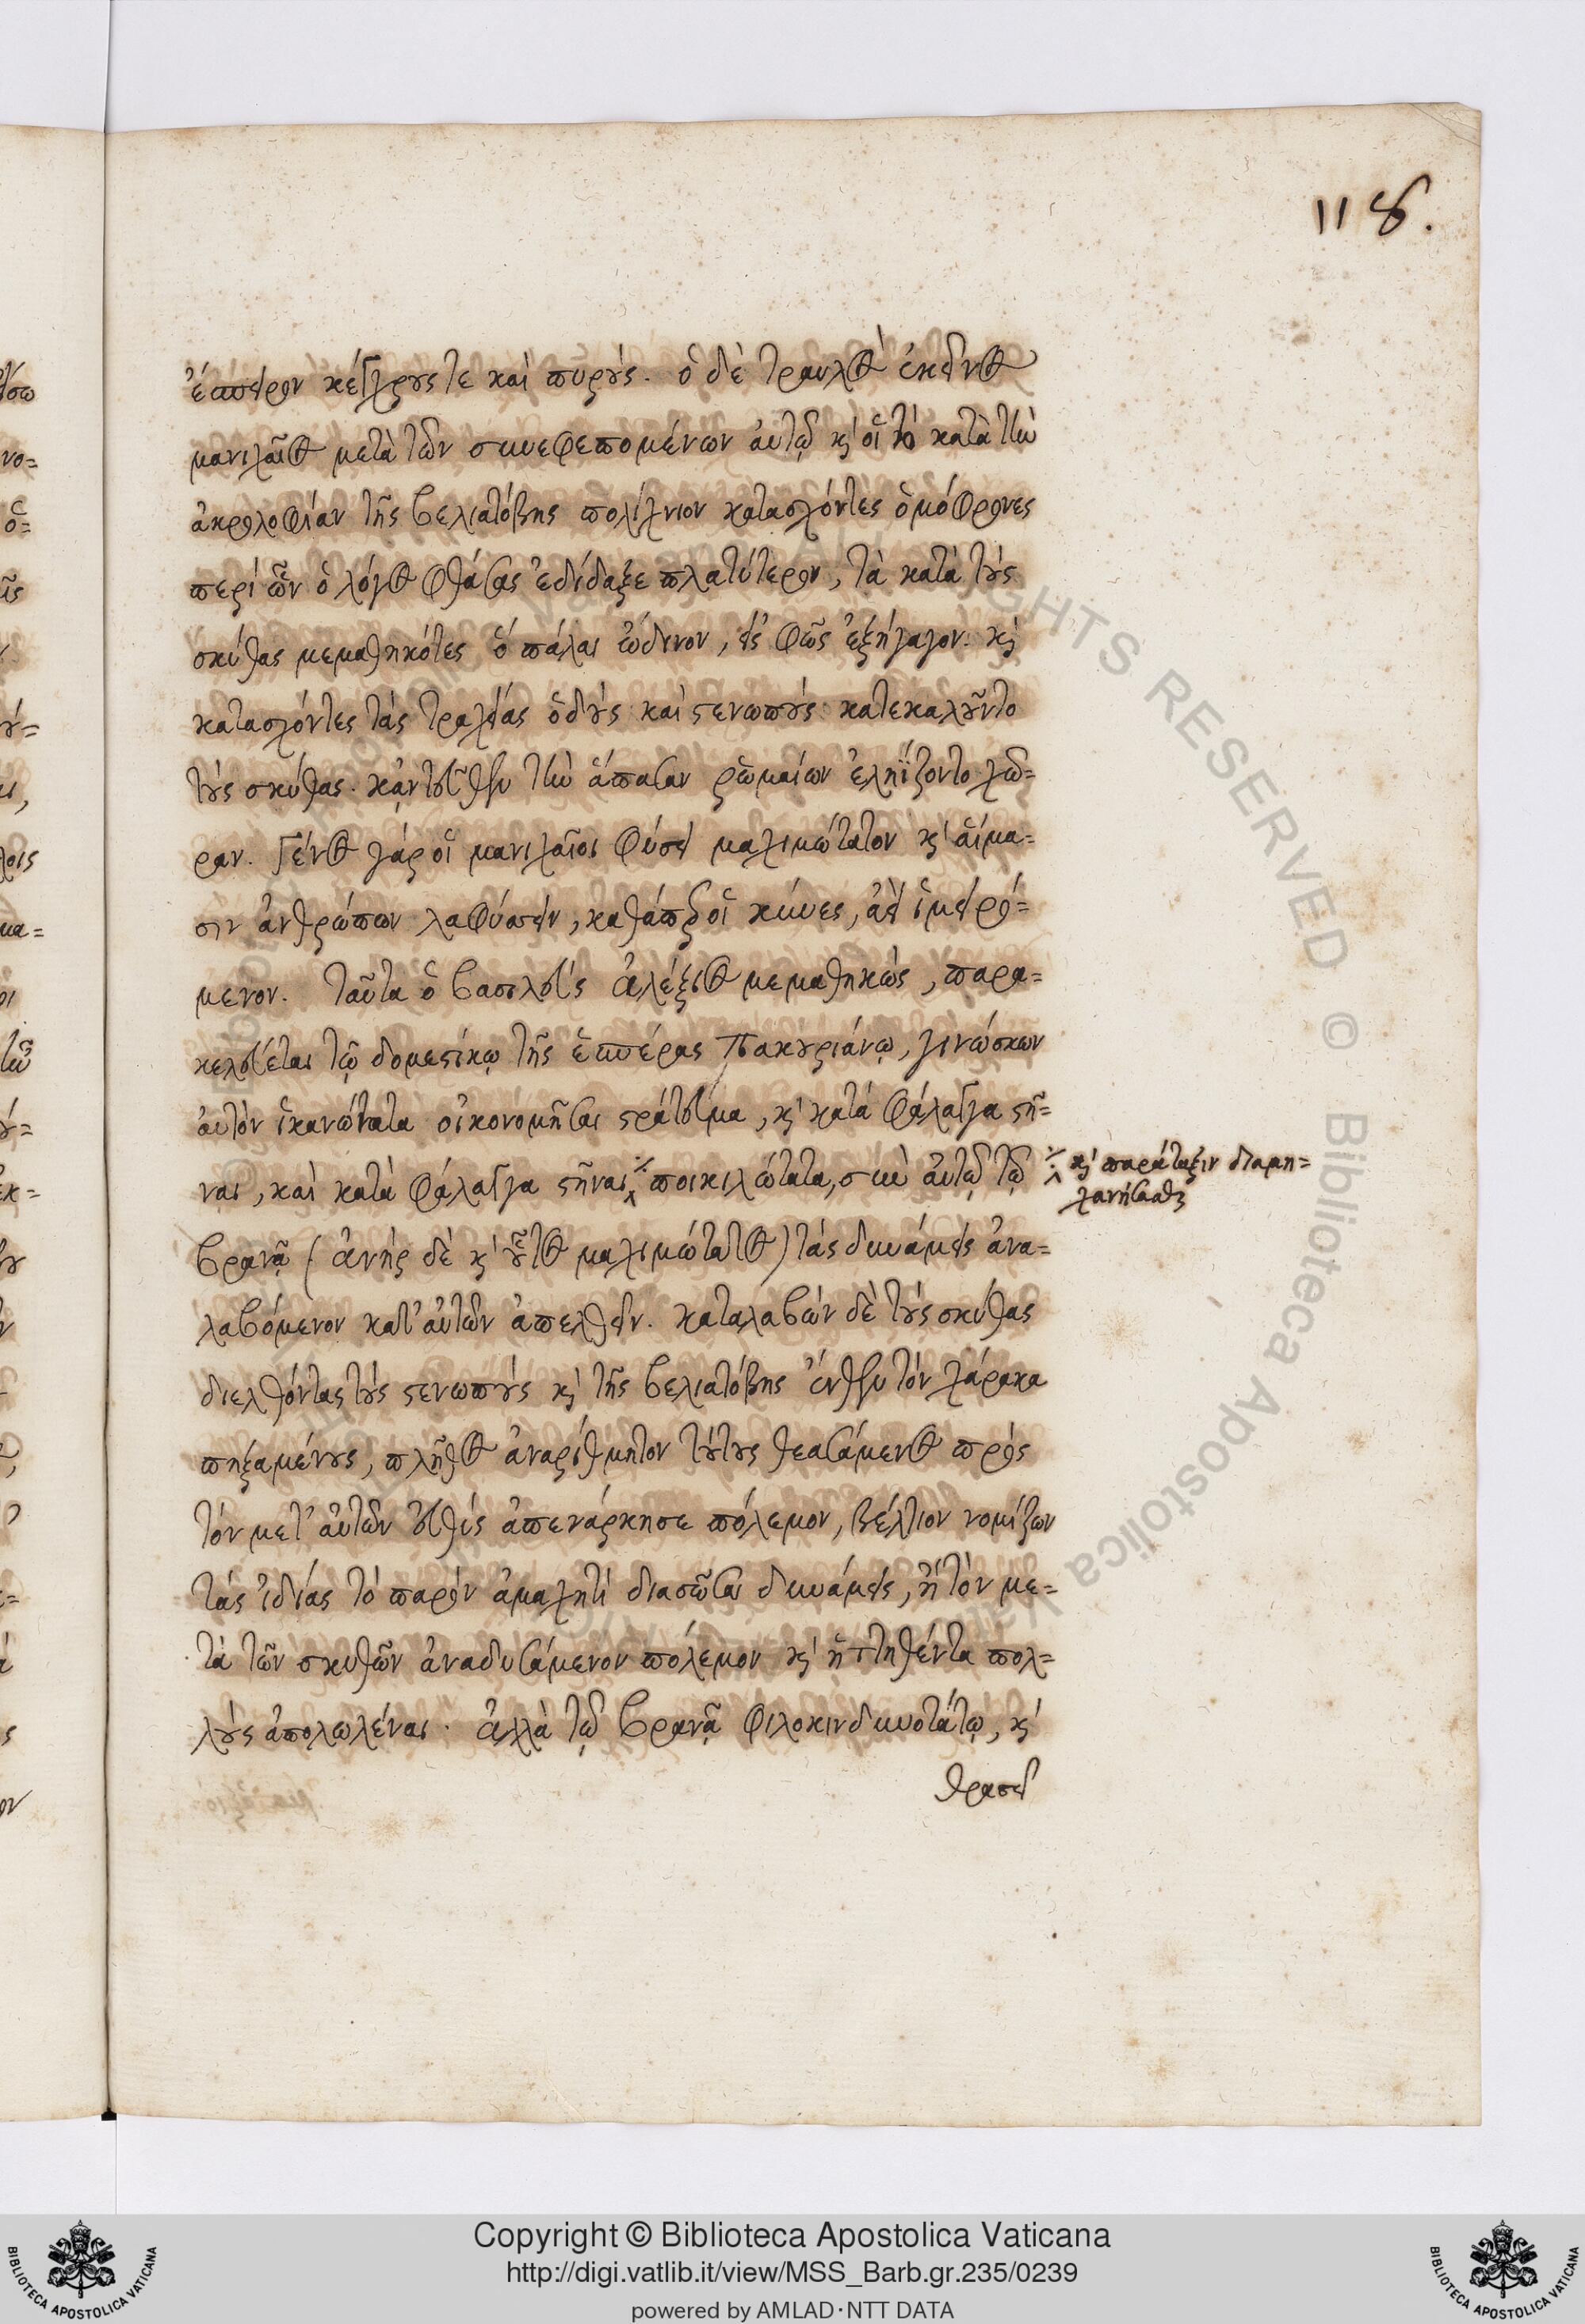 118.
ἔσπειρον κέγχρους τε καὶ πυρούς. ὁ δὲ τραυλὸς ἐκεῖνος
μανιχαῖος μετὰ τῶν συνεφεπομένων αὐτῷ κ' οἱ τὸ κατὰ τὴν
ἀκρολοφίαν τῆς βελιατόβης πολίχνιον κατασχόντες ὁμόφρονες
περὶ ὧν ὁ λόγος φθάσας ἐδίδαξε πλατύτερον, τὰ κατὰ τοὺς
σκύθας μεμαθηκότες ὃ πάλαι ὤδινον, εἰς φῶς ἐξήγαγον. κ'
κατασχόντες τὰς τραχείας ὁδοὺς καὶ στενωποὺς κατεκαλοῦντο
τοὺς σκύθας. κἀντεῦθεν τὴν ἅπασαν ῥωμαίων ἐληΐζοντο χώ=
ραν. Γένος γὰρ οἱ μανιχαῖοι φύσει μαχιμώτατον κ' αἵμα=
σιν ἀνθρώπων λαφύσσειν, καθάπερ οἱ κύνες, ἀεὶ ἱμειρό=
μενον. Ταῦτα ὁ βασιλεὺς ἀλέξιος μεμαθηκὼς, παρα=
κελεύεται τῷ δομεστίκῳ τῆς ἑσπέρας Πακουριάνῳ, γινώσκων
αὐτὸν ἱκανώτατα οἰκονομῆσαι στράτευμα, κ' κατὰ φάλαγγα στῆ=
ναι, καὶ κατὰ φάλαγγα στῆναι ποικιλώτατα, σὺν αὐτῷ τῷ
κ' παράταξιν διαμη=
χανήσασθαι
βρανᾷ (ἀνὴρ δὲ κ' οὗτος μαχιμώτατος) τὰς δυνάμεις ἀνα=
λαβόμενον κατ' αὐτῶν ἀπελθεῖν. καταλαβὼν δὲ τοὺς σκύθας
διελθόντας τοὺς στενωποὺς κ' τῆς βελιατόβης ἔνθεν τὸν χάρακα
πηξαμένους, πλῆθος ἀναρίθμητον τούτους θεασάμενος πρὸς
τὸν μετ' αὐτῶν εὐθὺς ἀπενάρκησε πόλεμον, βέλτιον νομίζων
τὰς ἰδίας τὸ παρὸν ἀμαχητὶ διασῶσαι δυνάμεις, ἢ τὸν με=
τὰ τῶν σκυθῶν ἀναδυσάμενον πόλεμον κ' ἡττηθέντα πολ=
λοὺς ἀπολωλέναι. ἀλλὰ τῷ βρανᾷ φιλοκινδυνοτάτῳ, κ'
θρασεῖ
Copyright © Biblioteca Apostolica Vaticana
http://digi.vatlib.it/view/MSS_Barb.gr.235/0239
powered by AMLAD·NTT DATA